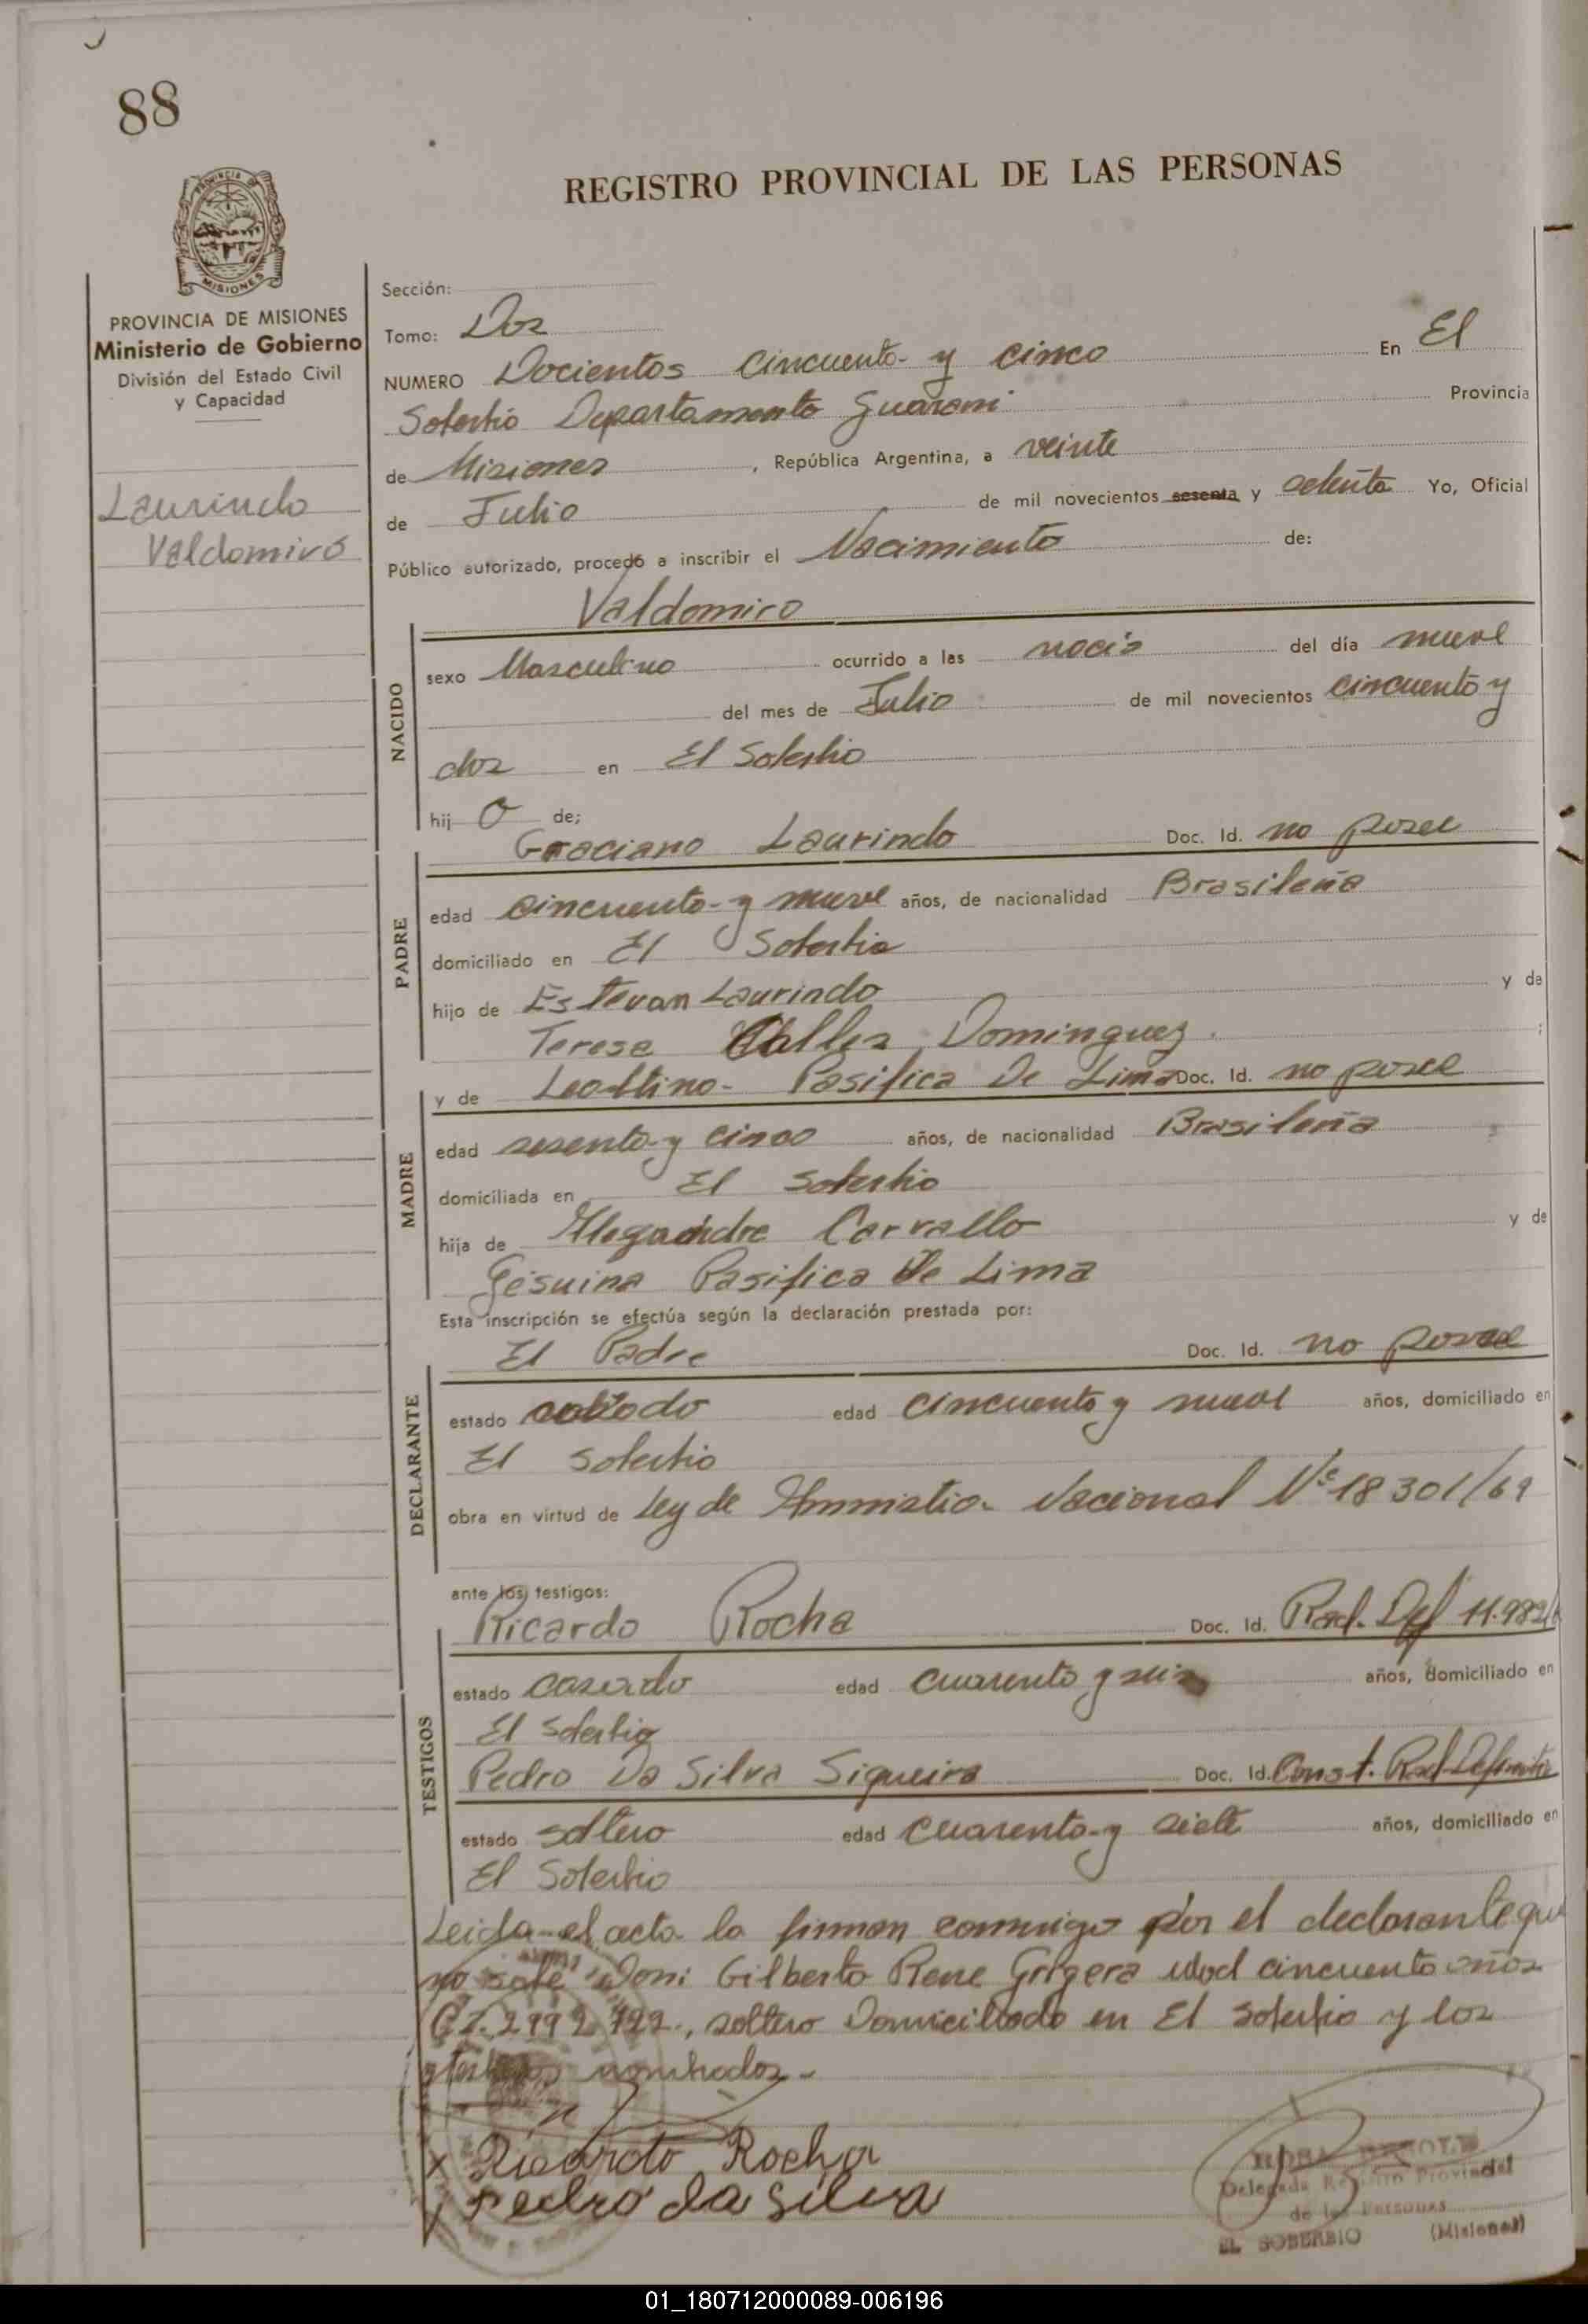 88
REGISTRO PROVINCIAL DE LAS PERSONAS
PROVINCIA DE MISIONES
Ministerio de Gobierno
División del Estado Civil
y Capacidad
Laurindo
Valdomiro
Sección:
Tomo: Dos
NUMERO Docientos Cincuenta y cinco En El
Soberbio Departamento Guarani Provincia
de Misiones, República Argentina, a veinte
de Julio de mil novecientos sesenta y setenta Yo, Oficial
Público autorizado, procedo a inscribir el Nacimiento de:
Valdomiro
NACIDO
sexo Masculino ocurrido a las del día nueve
del mes de Julio de mil novecientos cincuenta y
dos en El Soberbio
hij o de;
Graciano Laurindo Doc. Id. no posee
PADRE
edad cincuenta y nueve años, de nacionalidad Brasileña
domiciliado en El Soberbio
hijo de Estevan Laurindo y de
Teresa Dominguez;
y de Pasifica De Lima Doc. Id. no posee
MADRE
edad sesenta y cinco años, de nacionalidad Brasileña
domiciliada en El Soberbio
hija de Alegandre Carvallo y de
Gesuina Pasifica De Lima
Esta inscripción se efectúa según la declaración prestada por:
El Padre Doc. Id. no posee
DECLARANTE
estado edad cincuenta y nueve años, domiciliado en
El Soberbio
obra en virtud de Ley de Amnistia Nacional Nº 18301/69
ante los testigos:
Ricardo Rocha Doc. Id. Rad. Def 11.982
TESTIGOS
estado casado edad cuarenta y seis años, domiciliado en
El Soberbio
Pedro Da Silva Siqueira Doc. Id. Const. Rad. Definitiva
estado soltero edad cuarenta y siete años, domiciliado en
El Soberbio
Leida el acta la firman conmigo por el declarante que
no sabe Don: Gilberto Rene Grigera edad cincuenta años
C.I. 2992722, soltero Domiciliado en El Soberbio y los
testigos nombrados.-
x Ricardo Rocha
x Pedro da Silva
Delegada Registro Provincial
de las Personas
EL SOBERBIO (Misiones)
01_180712000089-006196